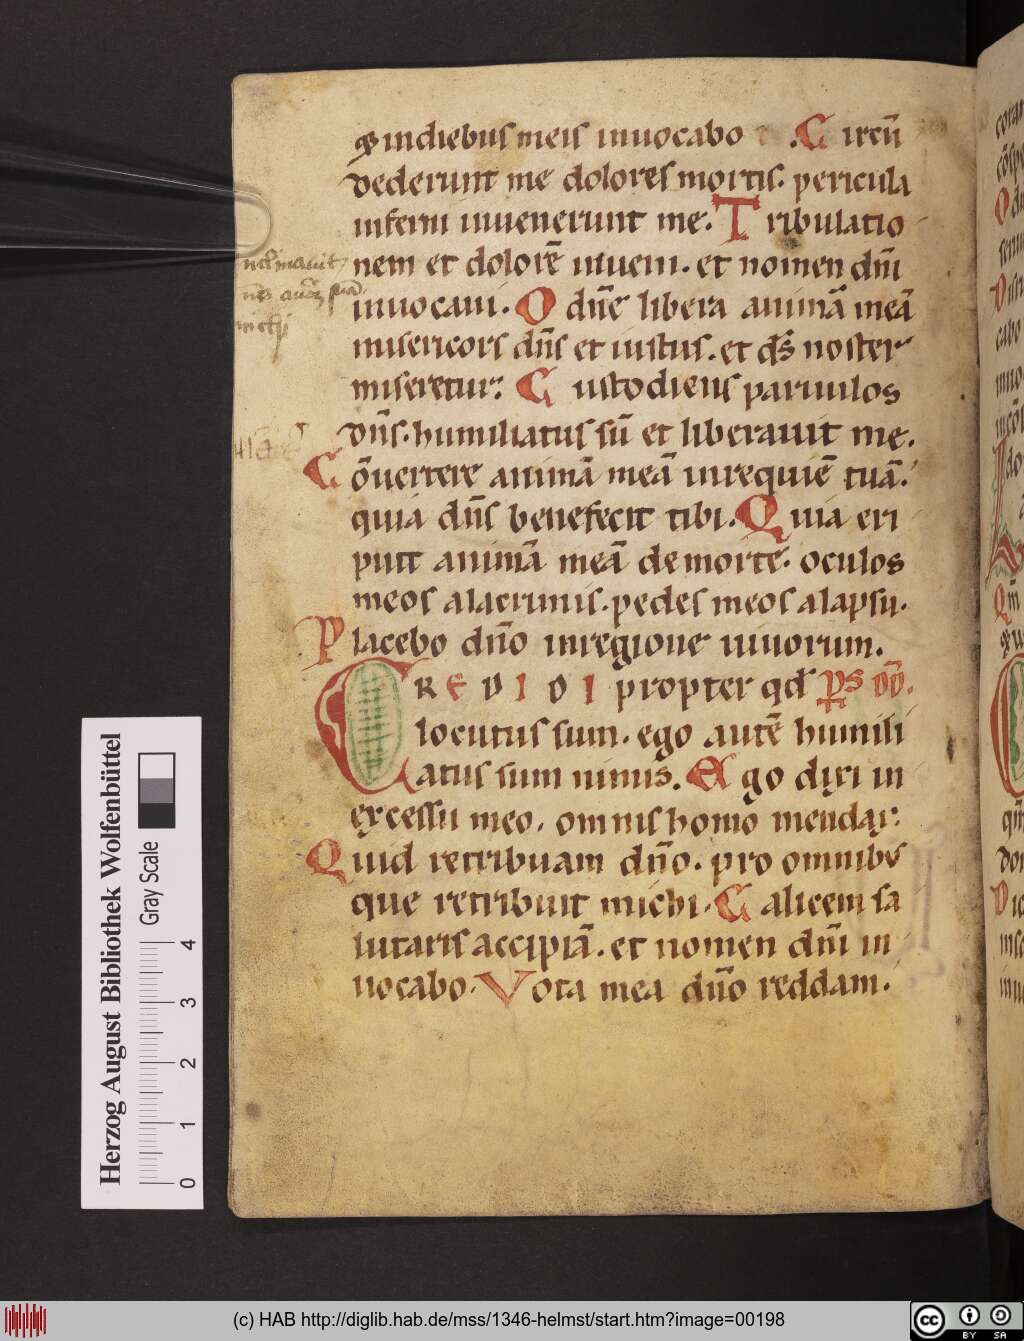 & indiebus meis inuocabo .Circū
dederunt me dolores mortis. pericula
inferni inuenerunt me. Tribulatio
nem et dolorē inueni. et nomen dn̄i
inuocaui. O dn̄e libera animā meā
misericors dn̄s et iustus. et ds̄ noster
miseretur. Custodiens paruulos
dn̄s. humiliatus sū et liberauit me.
Cōuertere animā meā inrequiē tuā.
quia dn̄s benefecit tibi. Quia eri
puit animā meā de morte. oculos
meos alacrimis. pedes meos alapsu.
Placebo dn̄o inregione uiuorum.
CREDIDI propter qd̄
locutus sum. ego autē humili
atus sum nimis. Ego dixi in
excessu meo. omnis homo mendax.
Quid retribuam dn̄o. pro omnibꝰ
que retribuit michi. Calicem sa
lutaris accipiā. et nomen dn̄i in
uocabo. Vota mea dn̄o reddam.
inclinauit
michi
Herzog August Bibliothek Wolfenbüttel
Gray Scale
0 1 2 3 4
(c) HAB http://diglib.hab.de/mss/1346-helmst/start.htm?image=00198
cc BY SA